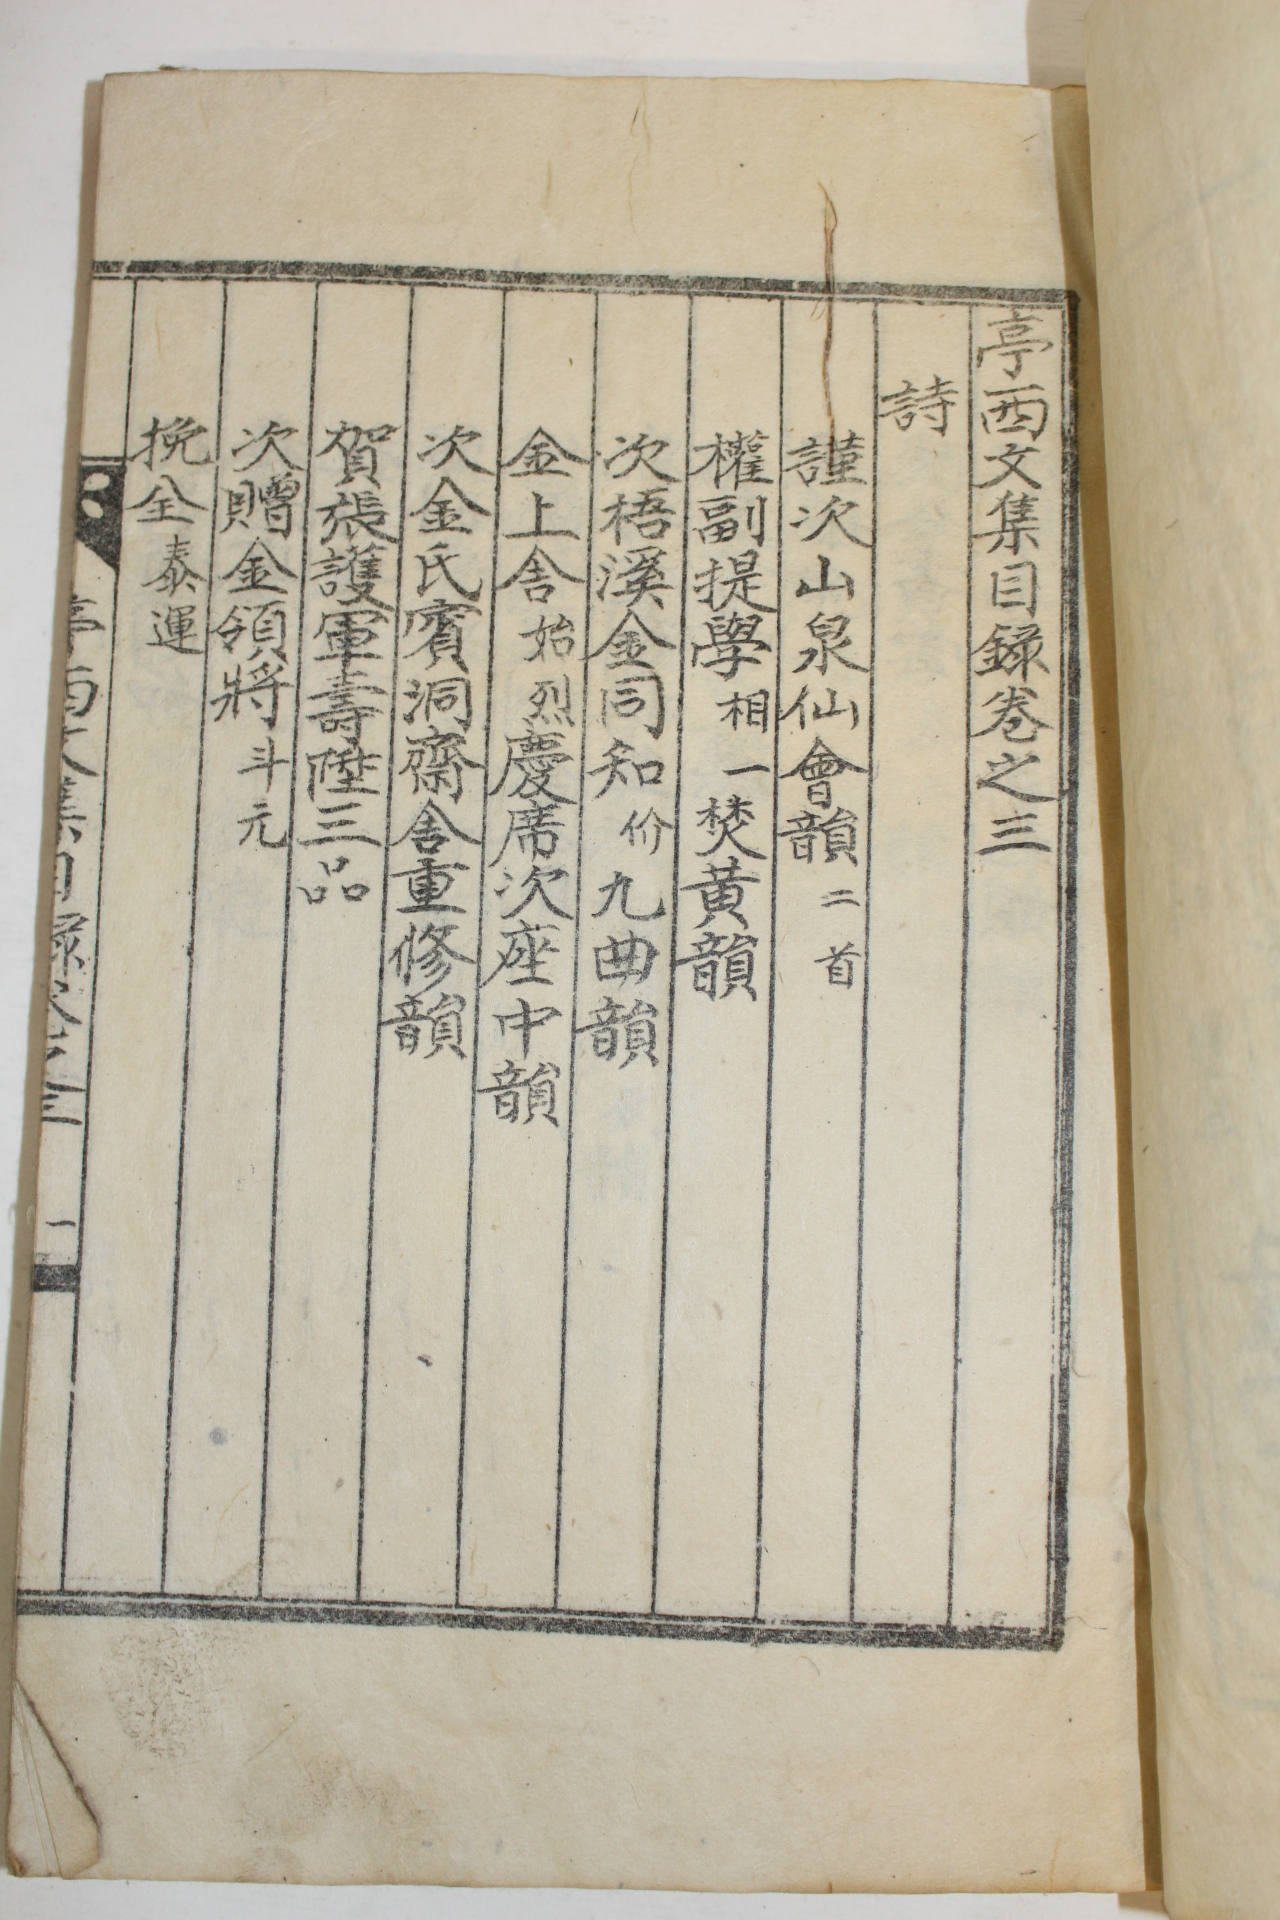 亭西文集目錄卷之三
詩
謹次山泉仙會韻二首
權副提學相一焚黃韻
次梧溪金同知价九曲韻
金上舍始烈慶席次座中韻
次金氏賓洞齋舍重修韻
賀張護軍壽陞三品
次贈金領將斗元
挽全泰運
亭西文集目錄卷之三 一